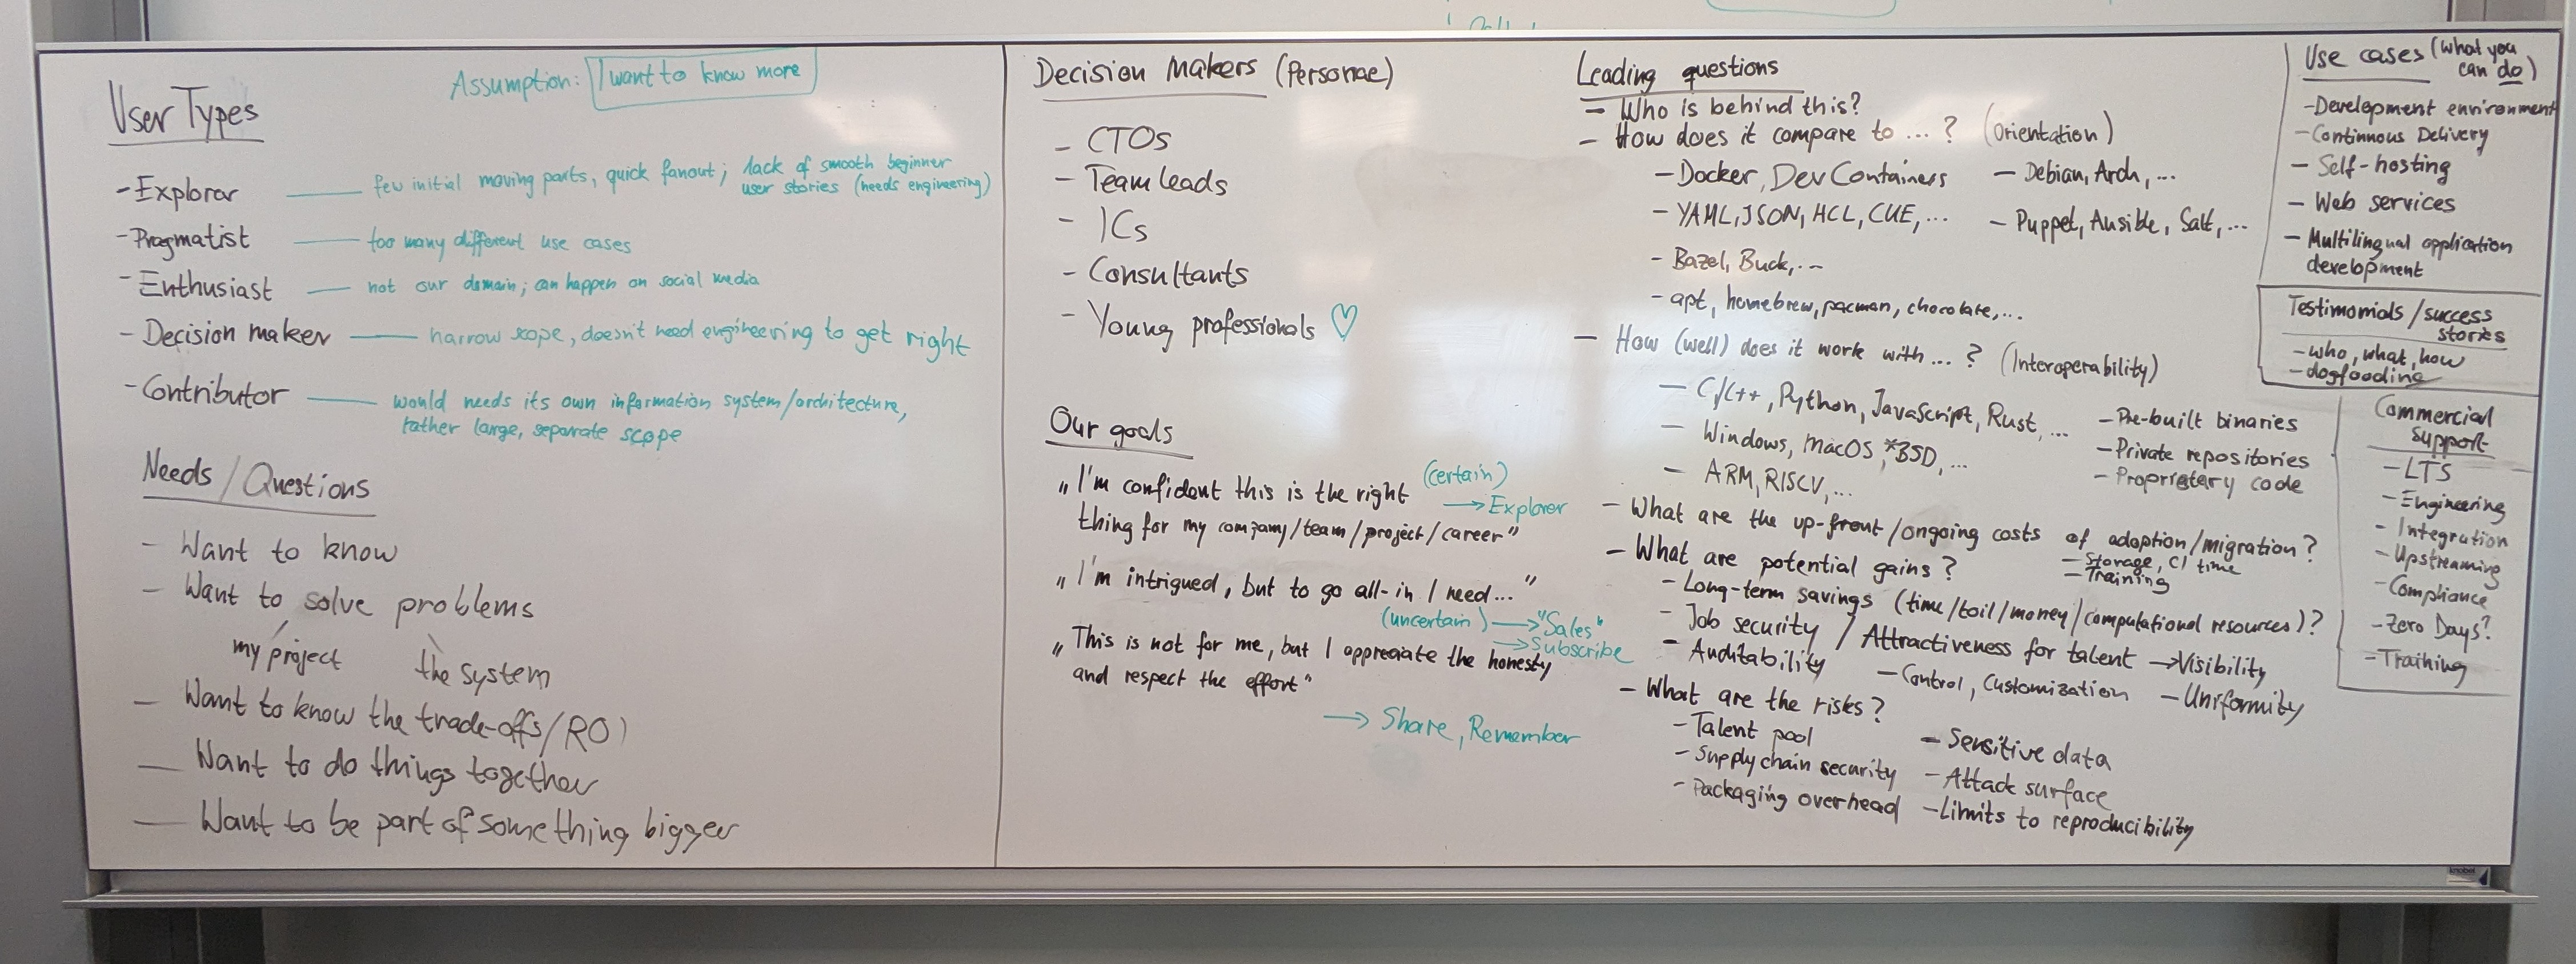 Assumption: I want to know more
User Types
- Explorer — few initial moving parts, quick fanout; lack of smooth beginner
user stories (needs engineering)
- Pragmatist — too many different use cases
- Enthusiast — not our domain; can happen on social media
- Decision maker — narrow scope, doesn't need engineering to get right
- Contributor — would needs its own information system/architecture,
rather large, separate scope
Needs/Questions
- Want to know
- Want to solve problems
my project the system
- Want to know the trade-offs/ROI
- Want to do things together
- Want to be part of something bigger
Decision Makers (Personae)
- CTOs
- Team leads
- ICs
- Consultants
- Young professionals ♡
Our goals
„I'm confident this is the right (certain)
→ Explorer
thing for my company/team/project/career"
„I'm intrigued, but to go all-in I need..."
(uncertain) → "Sales"
→ Subscribe
„This is not for me, but I appreciate the honesty
and respect the effort"
→ Share, Remember
Leading questions
- Who is behind this?
- How does it compare to ... ? (Orientation)
- Docker, DevContainers - Debian, Arch, ...
- YAML, JSON, HCL, CUE, ... - Puppet, Ansible, Salt, ...
- Bazel, Buck, ...
- apt, homebrew, pacman, chocolate, ...
- How (well) does it work with ... ? (Interoperability)
- C/C++, Python, JavaScript, Rust, ... - Pre-built binaries
- Windows, macOS, *BSD, ... - Private repositories
- ARM, RISCV, ... - Proprietary code
- What are the up-front/ongoing costs of adoption/migration?
- Storage, CI time
- Training
- What are potential gains?
- Long-term savings (time/toil/money/computational resources)?
- Job security / Attractiveness for talent → Visibility
- Auditability - Control, Customization - Uniformity
- What are the risks?
- Talent pool - Sensitive data
- Supply chain security - Attack surface
- Packaging overhead - Limits to reproducibility
Use cases (what you
can do)
- Development environment
- Continuous Delivery
- Self-hosting
- Web services
- Multilingual application
development
Testimonials/success
stories
- who, what, how
- dogfooding
Commercial
support
- LTS
- Engineering
- Integration
- Upstreaming
- Compliance
- Zero Days?
- Training
knobel